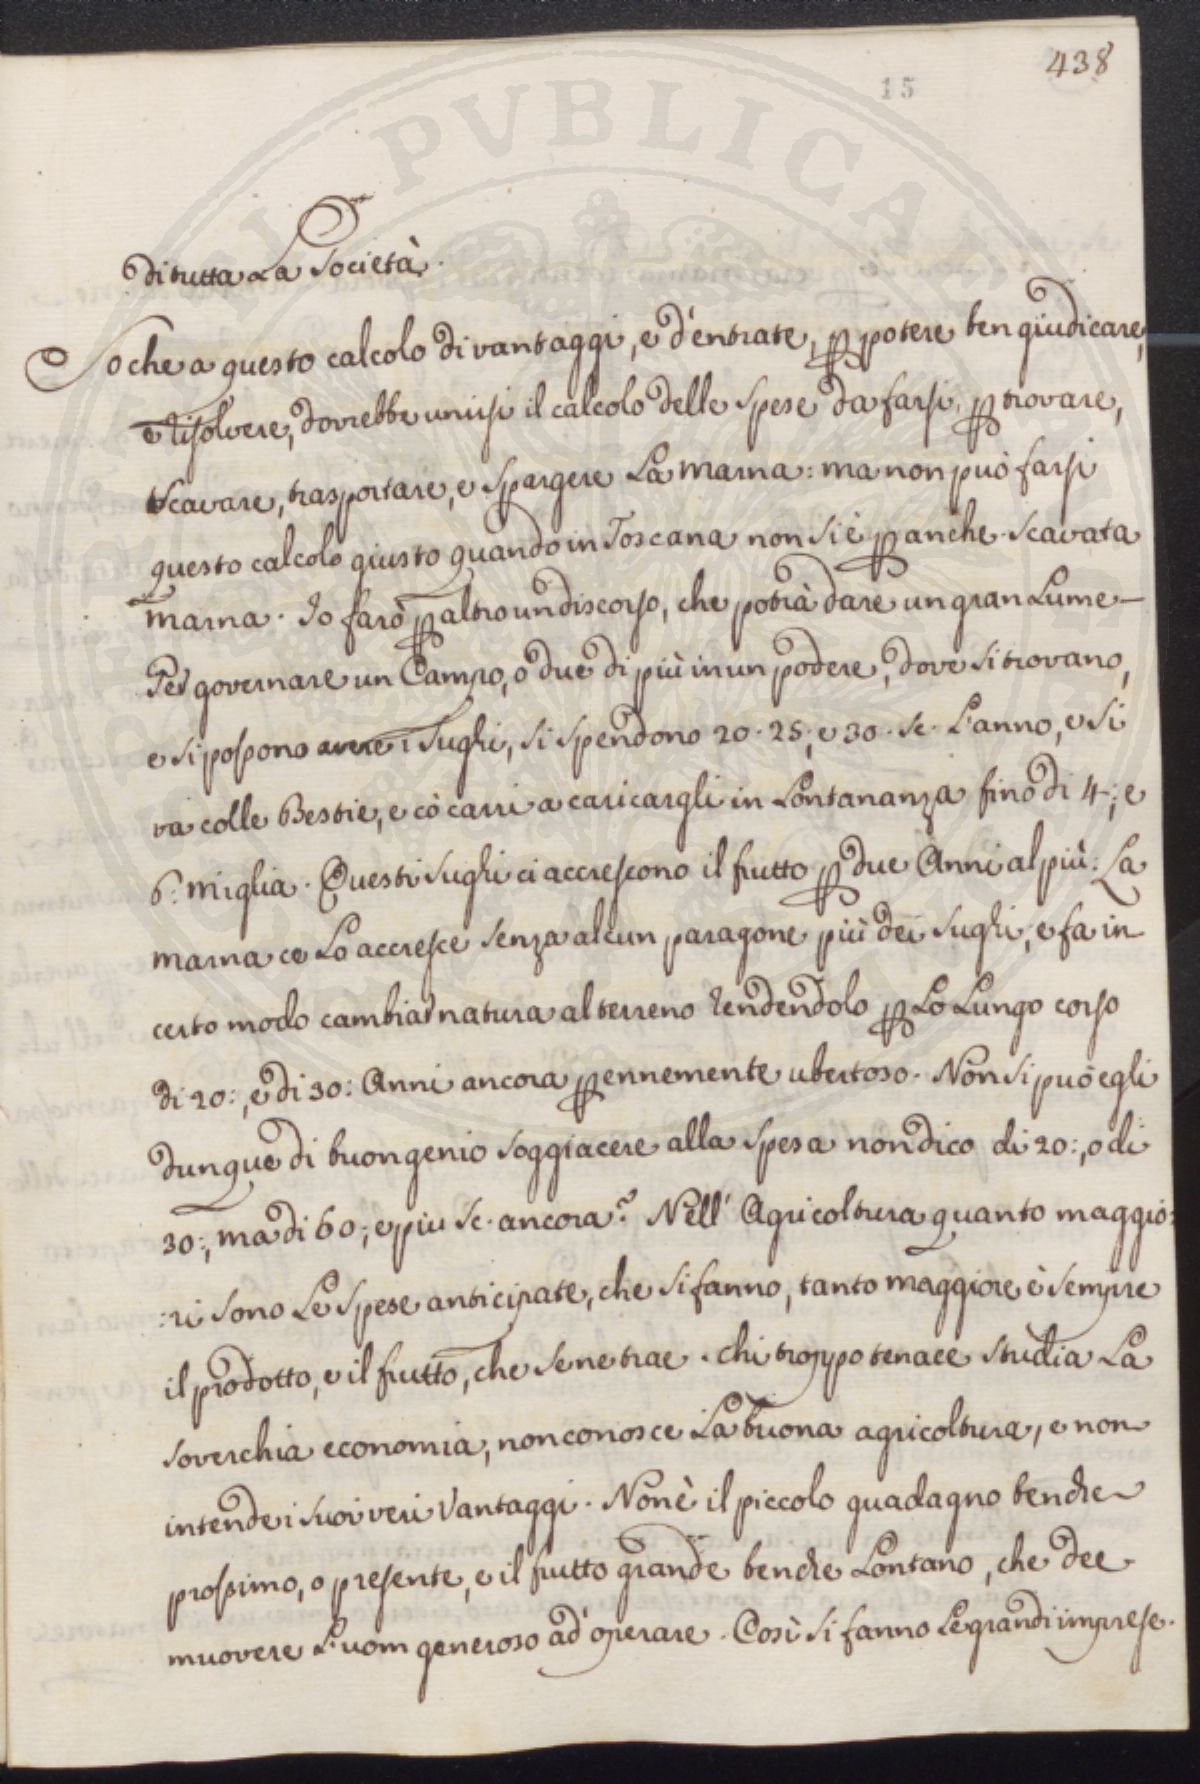 438
15
di tutta La Società.
So che a questo calcolo di vantaggi, e d'entrate, p potere ben giudicare,
e risolvere, dovrebbe unirsi il calcolo delle Spese da farsi, p trovare,
scavare, trasportare, e Spargere La marna: ma non può farsi
questo calcolo giusto quando in Toscana non si è p anche scavata
marna. Io farò p altro un discorso, che potrà dare un gran Lume—
Per governare un Campo, o due di più in un podere, dove si trovano,
e si possono avere i Sughi, si spendono 20. 25, e 30. Sc. L'anno, e si
va colle Bestie, e cò carri a caricargli in Lontananza fino di 4:, e
6: miglia. Questi sughi ci accrescono il frutto p due Anni al più: La
marna ce Lo accresce senza alcun paragone più dei Sughi, e fa in
certo modo cambiar natura al terreno rendendolo p Lo Lungo corso
di 20:, e di 30: Anni ancora pennemente ubertoso. Non si può egli
dunque di buon genio soggiacere alla spesa non dico di 20:, o di
30:, ma di 60:, e piu Sc. ancora? Nell' Agricoltura quanto maggio:
:ri sono Le Spese anticipate, che si fanno, tanto maggiore è sempre
il prodotto, e il frutto, che se ne trae. chi troppo tenace studia La
soverchia economia, non conosce La buona agricoltura, e non
intende i suoi veri Vantaggi. Non è il piccolo guadagno benche
prossimo, o presente, e il frutto grande benche Lontano, che dee
muovere L'uom generoso ad operare. Così si fanno Le grandi imprese.